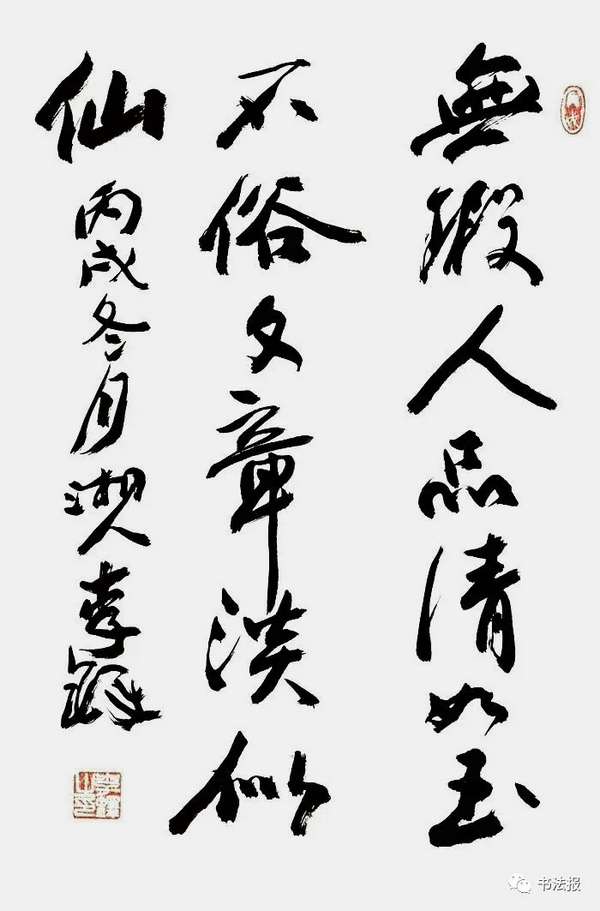 無瑕人品清如玉
不俗文章淡似
仙 丙戌冬月湘人李鐸
书法报